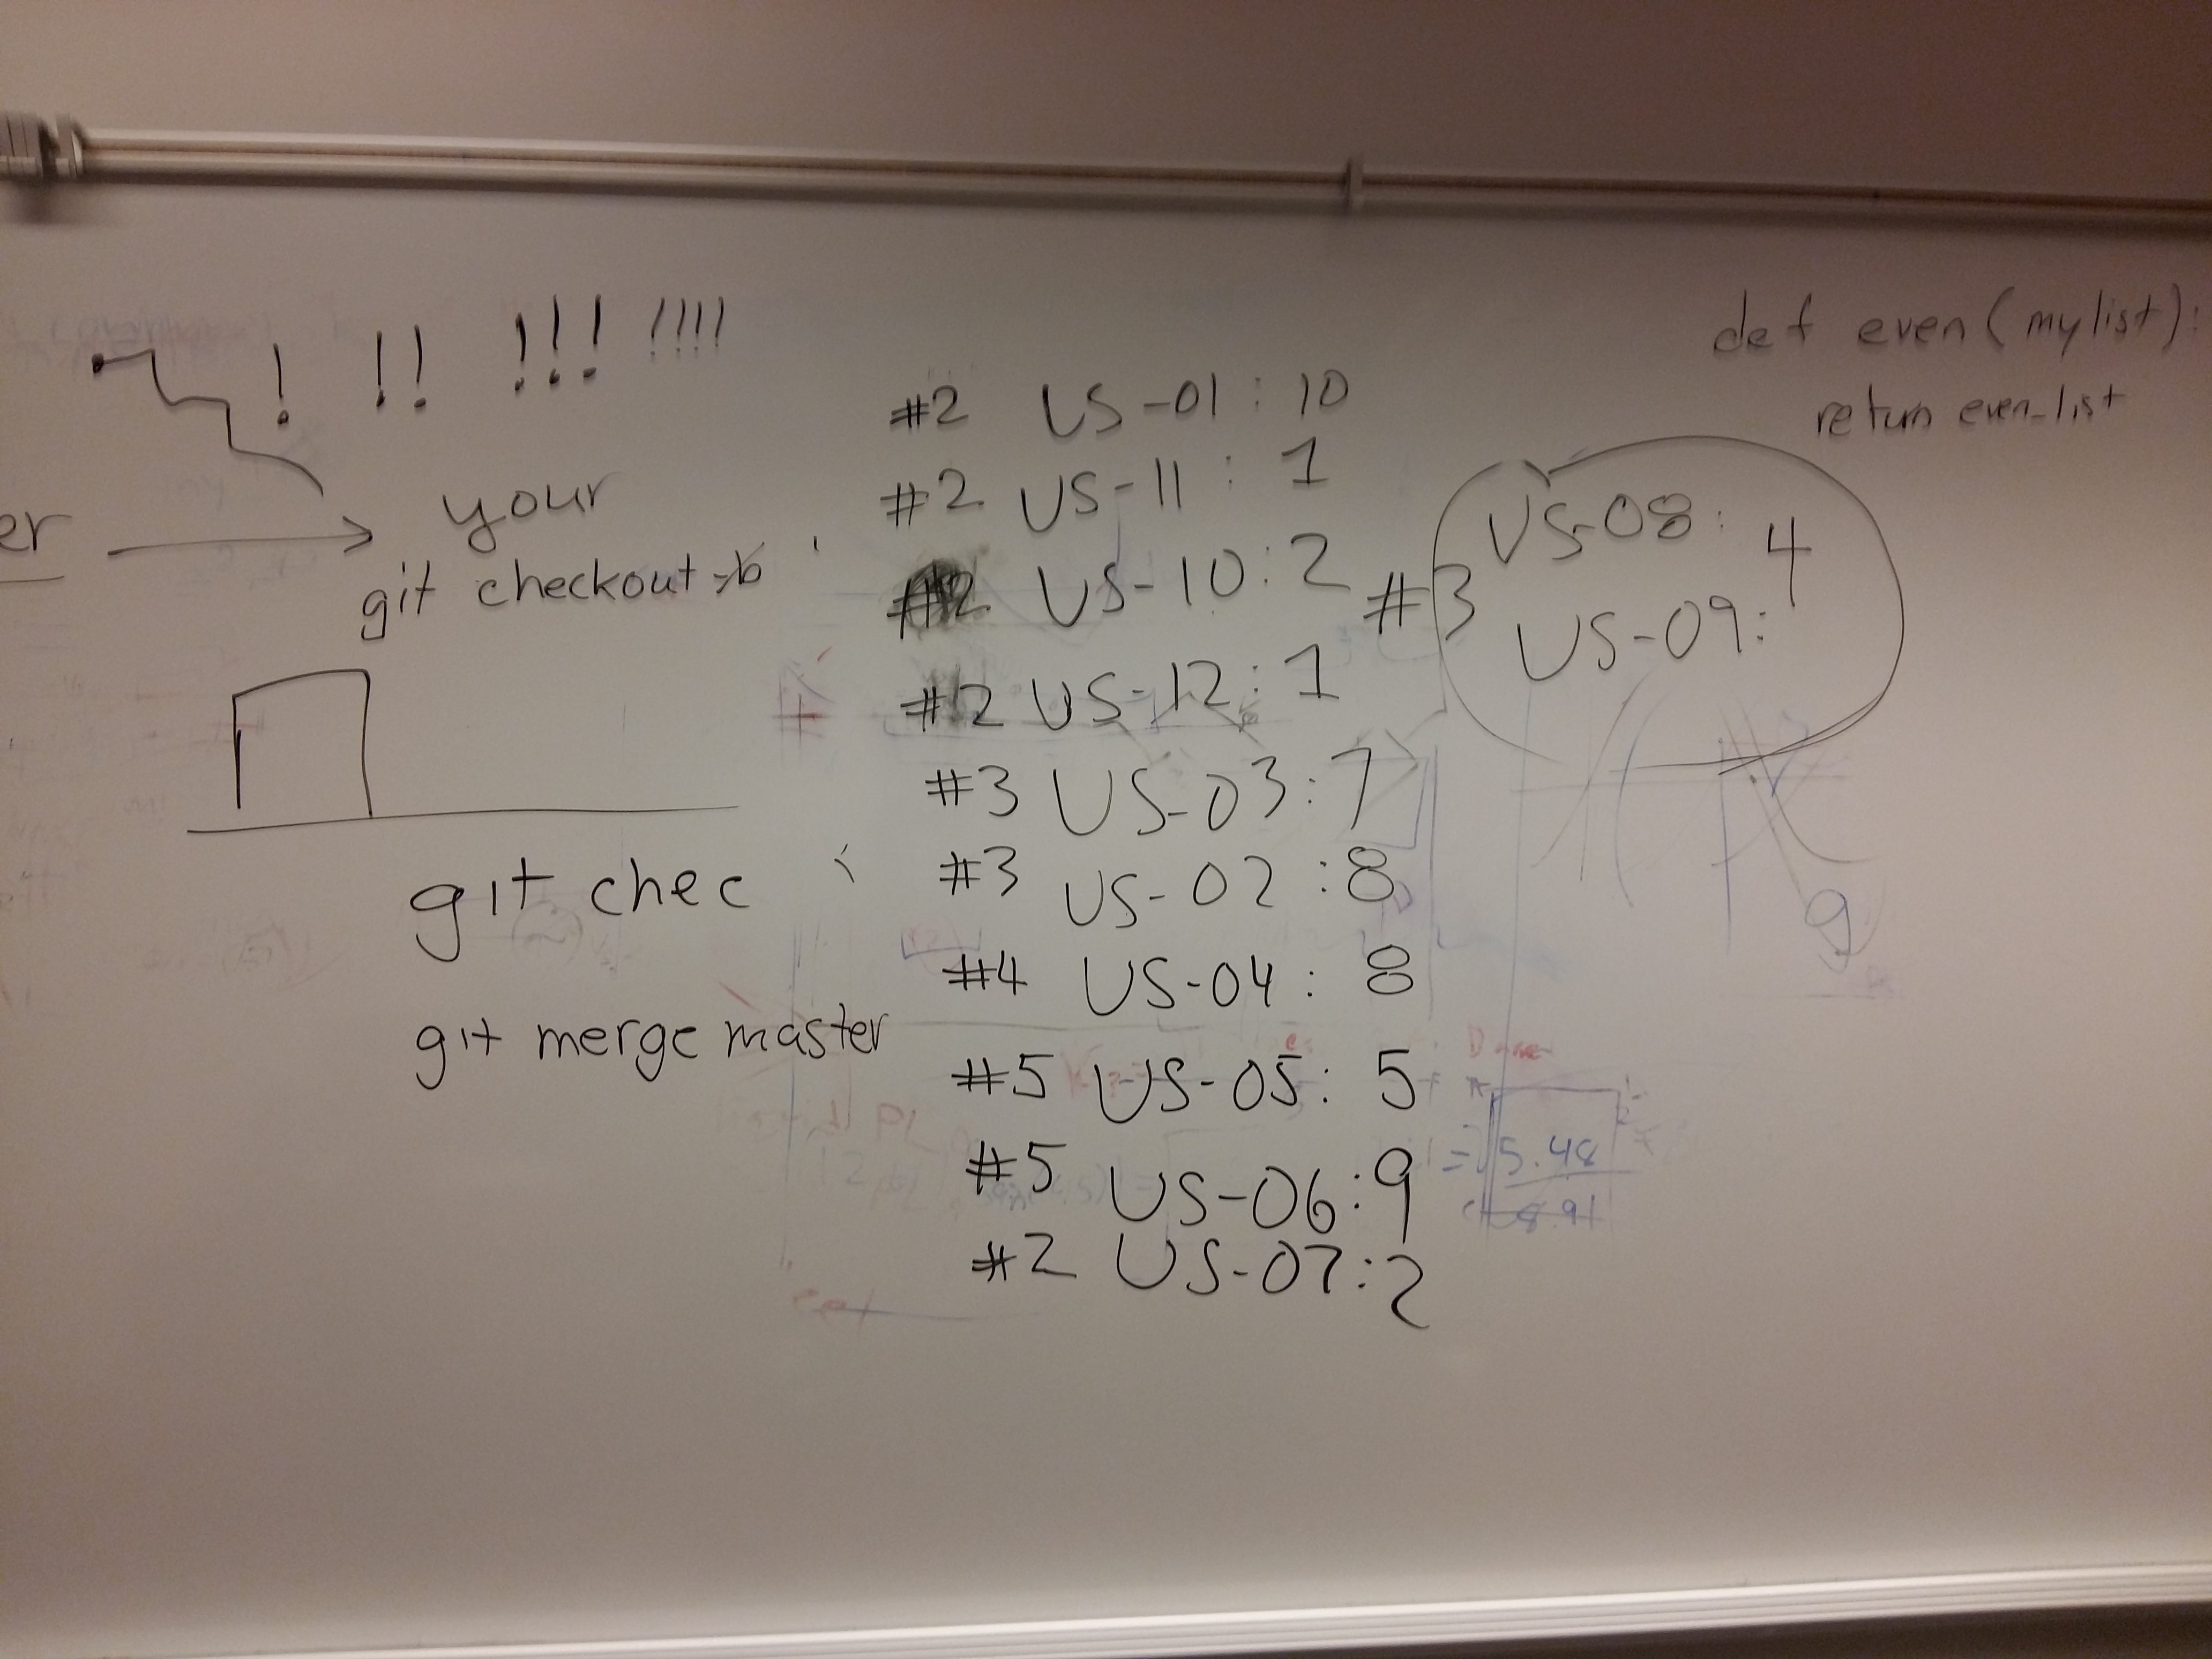 ! !! !!! !!!!
er
your
git checkout -b
git chec
git merge master
#2 US-01: 10
#2 US-11: 1
#2 US-10: 2
#2 US-12: 1
#3 US-03: 7
#3 US-02: 8
#4 US-04: 8
#5 US-05: 5
#5 US-06: 9
#2 US-07: 2
#3
US-08:
4
US-09:
def even(mylist):
return even_list
g
5.48
8.91